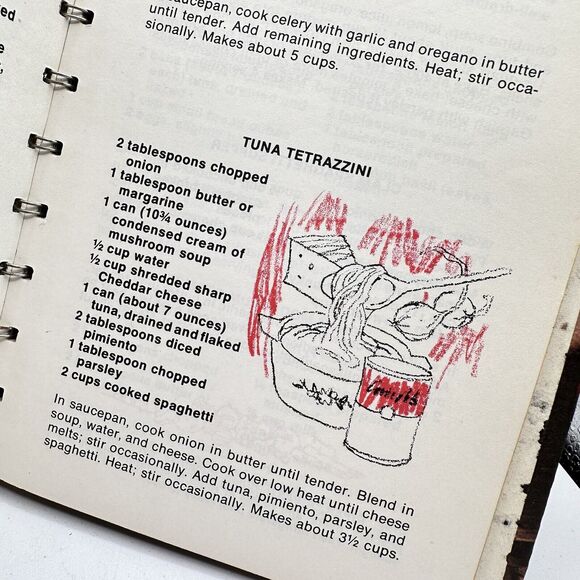 saucepan, cook celery with garlic and oregano in butter
until tender. Add remaining ingredients. Heat; stir occa-
sionally. Makes about 5 cups.
TUNA TETRAZZINI
2 tablespoons chopped
onion
1 tablespoon butter or
margarine
1 can (10¾ ounces)
condensed cream of
mushroom soup
½ cup water
½ cup shredded sharp
Cheddar cheese
1 can (about 7 ounces)
tuna, drained and flaked
2 tablespoons diced
pimiento
1 tablespoon chopped
parsley
2 cups cooked spaghetti
In saucepan, cook onion in butter until tender. Blend in
soup, water, and cheese. Cook over low heat until cheese
melts; stir occasionally. Add tuna, pimiento, parsley, and
spaghetti. Heat; stir occasionally. Makes about 3½ cups.